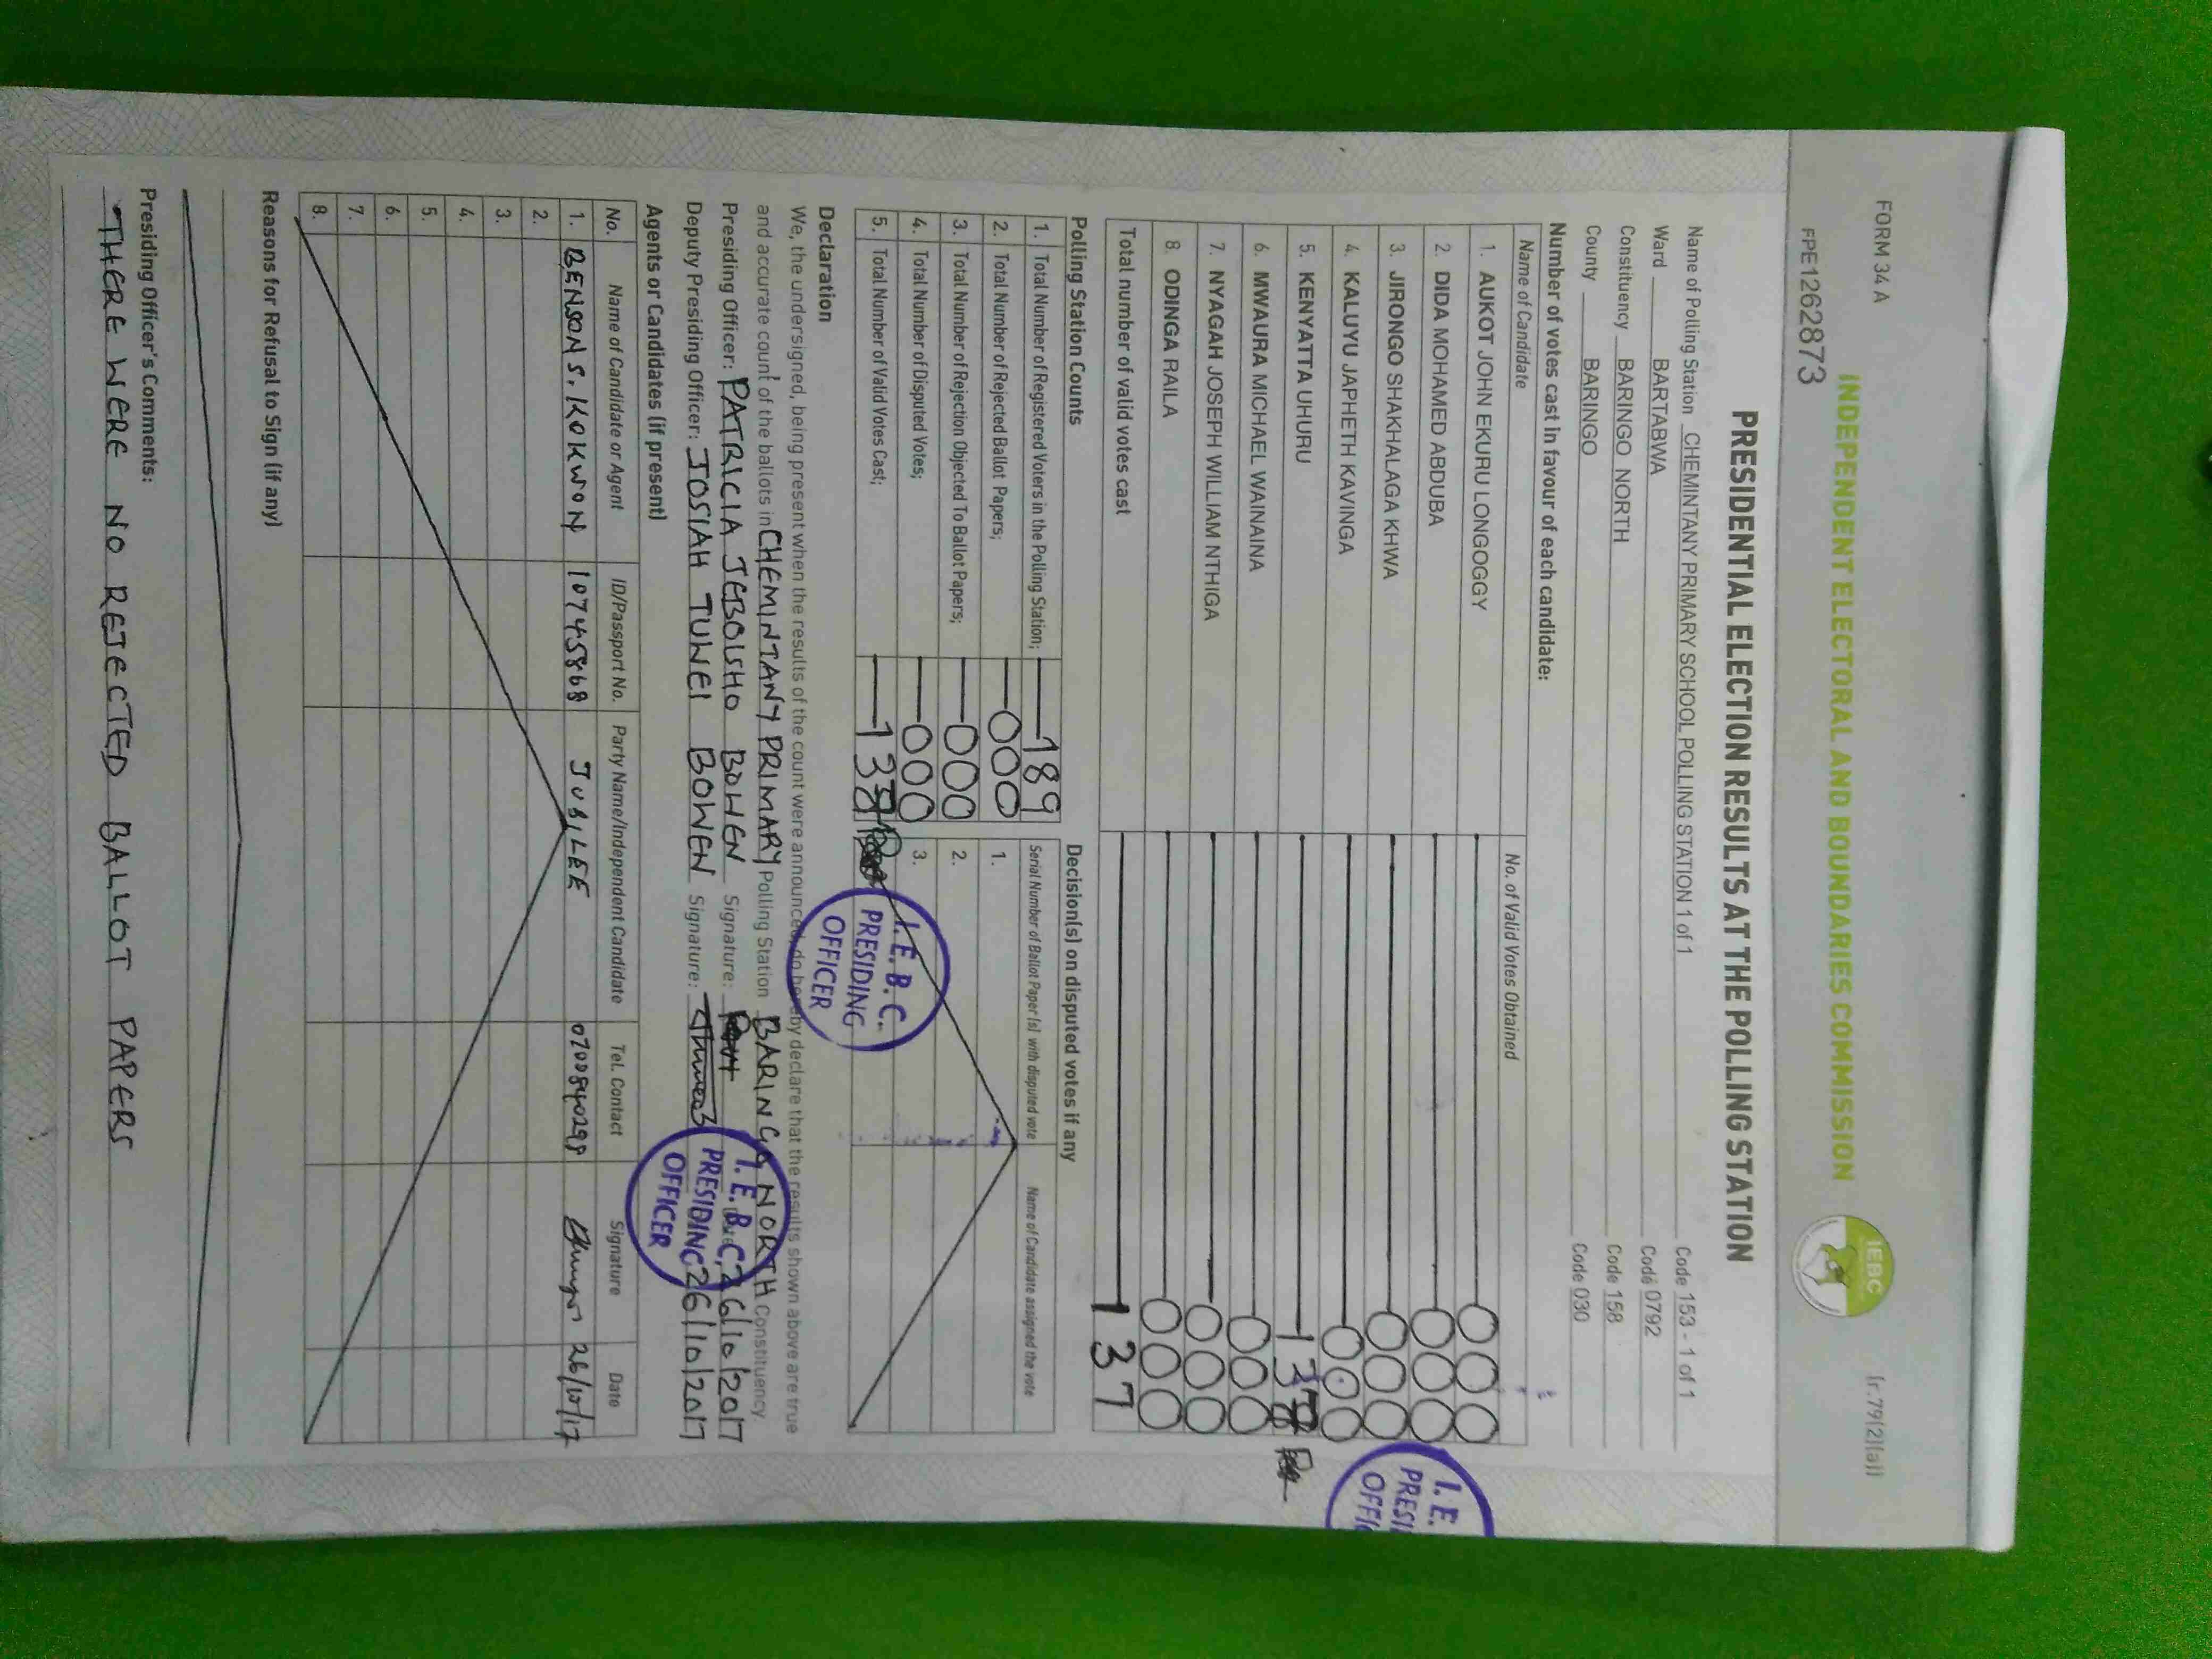 FORM 34 A
(r.79(2)(a))
INDEPENDENT ELECTORAL AND BOUNDARIES COMMISSION
IEBC
FPE1262873
PRESIDENTIAL ELECTION RESULTS AT THE POLLING STATION
Name of Polling Station CHEMINTANY PRIMARY SCHOOL POLLING STATION 1 of 1 Code 153 - 1 of 1
Ward BARTABWA Code 0792
Constituency BARINGO NORTH Code 158
County BARINGO Code 030
Number of votes cast in favour of each candidate:
Name of Candidate No. of Valid Votes Obtained
1. AUKOT JOHN EKURU LONGOGGY 000
2. DIDA MOHAMED ABDUBA 000
3. JIRONGO SHAKHALAGA KHWA 000
4. KALUYU JAPHETH KAVINGA 000
5. KENYATTA UHURU
6. MWAURA MICHAEL WAINAINA 000
7. NYAGAH JOSEPH WILLIAM NTHIGA 000
8. ODINGA RAILA 000
Total number of valid votes cast 137
I. E.
PRESI
OFFI
Polling Station Counts
1. Total Number of Registered Voters in the Polling Station; 189
2. Total Number of Rejected Ballot Papers; 000
3. Total Number of Rejection Objected To Ballot Papers; 000
4. Total Number of Disputed Votes; 000
5. Total Number of Valid Votes Cast;
Decision(s) on disputed votes if any
Serial Number of Ballot Paper(s) with disputed vote Name of Candidate assigned the vote
1.
2.
3.
I. E. B. C.
PRESIDING
OFFICER
Declaration
We, the undersigned, being present when the results of the count were announced, do hereby declare that the results shown above are true
and accurate count of the ballots in CHEMINTANY PRIMARY Polling Station BARINGO NORTH Constituency
Presiding Officer: PATRICIA JEBOISHO BOWEN Signature: Date 26/10/2017
Deputy Presiding Officer: JOSIAH TUWEI BOWEN Signature: 26/10/2017
I. E. B. C.
PRESIDING
OFFICER
Agents or Candidates (if present)
No. Name of Candidate or Agent ID/Passport No. Party Name/Independent Candidate Tel. Contact Signature Date
1. BENSON S. KOKWON 10745868 JUBILEE 0700840298 26/10/17
2.
3.
4.
5.
6.
7.
8.
Reasons for Refusal to Sign (if any)
Presiding Officer's Comments:
THERE WERE NO REJECTED BALLOT PAPERS